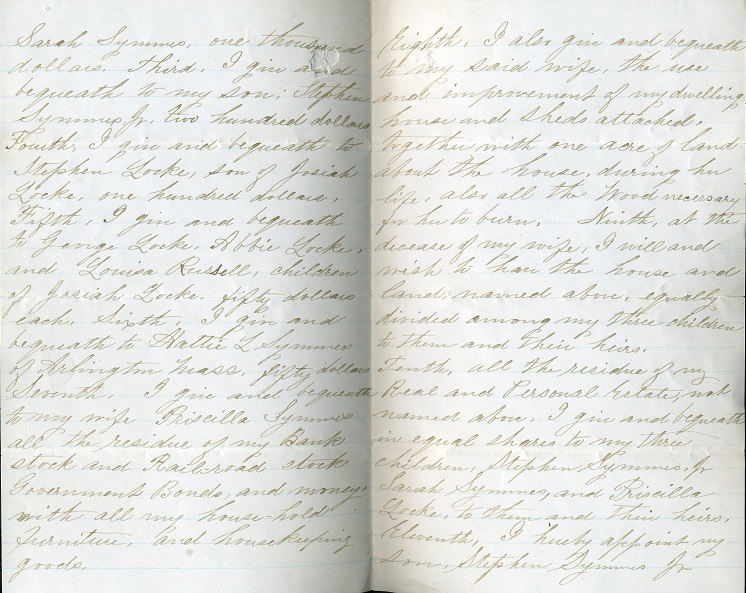 Sarah Symmes, one thousand
dollars. Third. I give and
bequeath to my son: Stephen
Symmes Jr. two hundred dollars
Fourth, I give and bequeath to
Stephen Locke, son of Josiah
Locke, one hundred dollars.
Fifth, I give and bequeath
to George Locke, Abbie Locke,
and Louisa Russell, children
of Josiah Locke, fifty dollars
each. Sixth I give and
bequeath to Hattie L Symmes
of Arlington Mass. fifty dollars
Seventh. I give and bequeath
to my wife Priscilla Symmes
all the residue of my Bank
stock and Rail-road stock
Government Bonds, and money,
with all my house-hold
furniture, and housekeeping
goods.
Eighth. I also give and bequeath
to my said wife, the use
and improvement of my dwelling
house and sheds attached.
together with one acre of land
about the house, during her
life, also all the wood necessary
for her to burn. Ninth, at the
decease of my wife, I will and
wish to have the house and
land, named above, equally
divided among my three children
to them and their heirs.
Tenth, all the residue of my
Real and Personal Estate, not
named above. I give and bequeath
in equal shares to my three
children, Stephen Symmes, Jr
Sarah Symmes, and Priscilla
Locke, to them and their heirs.
Eleventh, I hereby appoint my
son, Stephen Symmes Jr